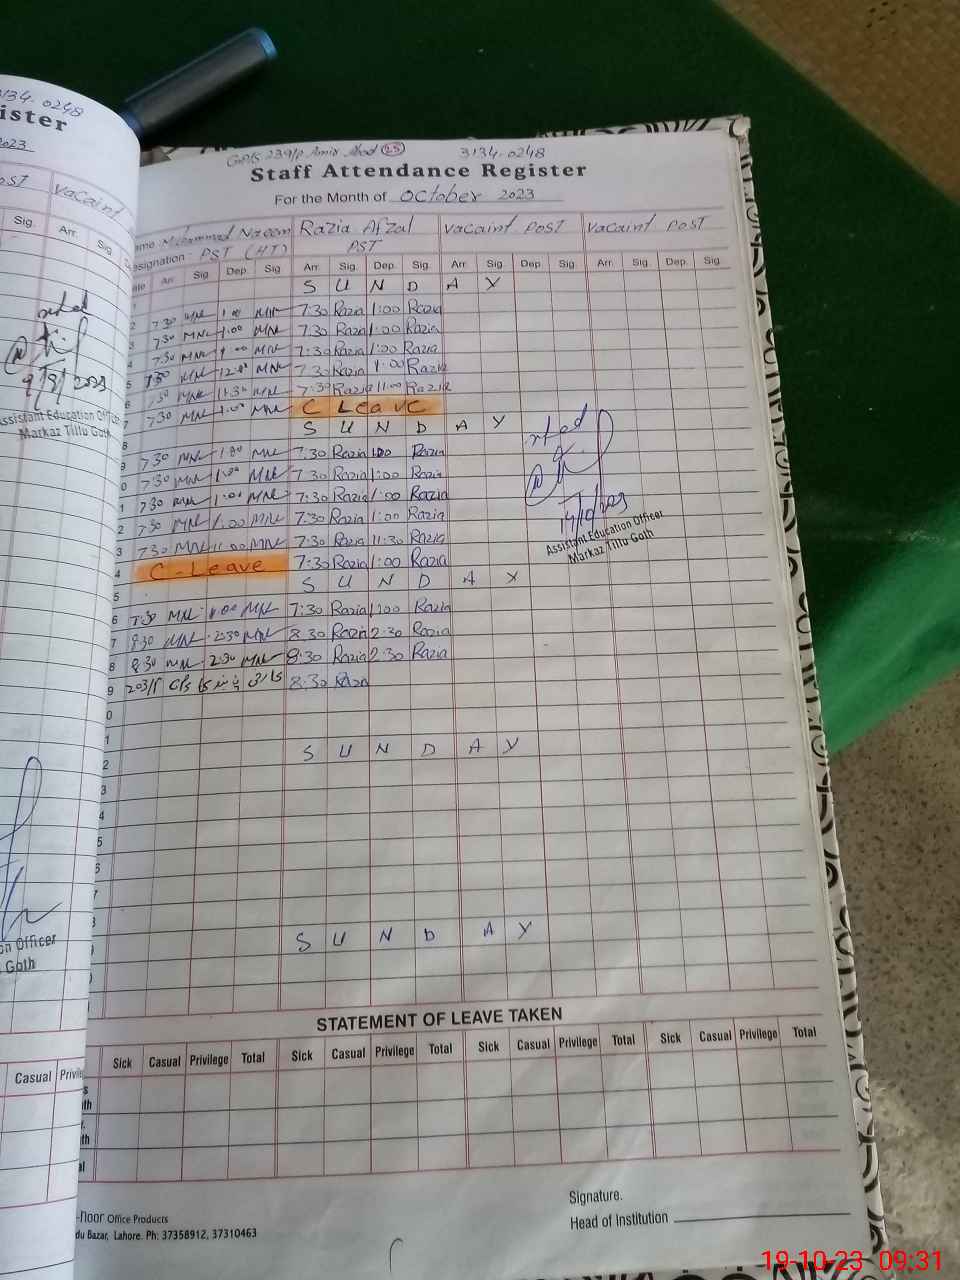 3134-0248
ister
2023
Vacaint
Sig. Arr. Sig.
9/9/2023
Assistant Education Off
Markaz Tillu Goth
on Officer
Goth
Casual Privile
3134-0248
Staff Attendance Register
For the Month of October 2023
ame Muhammad Naeem Razia Afzal Vacaint Post Vacaint Post
esignation PST (HT) PST
ate Arr. Sig. Dep. Sig. Arr. Sig. Dep. Sig. Arr. Sig. Dep. Sig. Arr. Sig. Dep. Sig.
1 S U N D A Y
2 7:30 MNL 1:00 MNL 7:30 Razia 1:00 Razia
3 7:30 MNL 1:00 MNL 7:30 Razia 1:00 Razia
4 7:30 MNL 1:00 MNL 7:30 Razia 1:00 Razia
5 7:30 MNL MNL 7:30 Razia 1:00 Razia
6 7:30 MNL 11:30 MNL 7:30 Razia 11:00 Razia
7 7:30 MNL 1:00 MNL C Leave
8 S U N D A Y
9 7:30 MNL 1:00 MNL 7:30 Razia 1:00 Razia
0 7:30 MNL 1:00 MNL 7:30 Razia 1:00 Razia
1 7:30 MNL 1:00 MNL 7:30 Razia 1:00 Razia
2 7:30 MNL 1:00 MNL 7:30 Razia 1:00 Razia
3 7:30 MNL 11:00 MNL 7:30 Razia 11:30 Razia
4 C-Leave 7:30 Razia 1:00 Razia
5 S U N D A Y
6 7:30 MNL 1:00 MNL 7:30 Razia 1:00 Razia
7 8:30 MNL 2:30 MNL 8:30 Razia 2:30 Razia
8 8:30 MNL 2:30 MNL 8:30 Razia 2:30 Razia
9 8:30 Razia
0
1
2 S U N D A Y
3
4
5
6
7
8
9 S U N D A Y
Assistant Education Officer
Markaz Tillu Goth
STATEMENT OF LEAVE TAKEN
Sick Casual Privilege Total Sick Casual Privilege Total Sick Casual Privilege Total Sick Casual Privilege Total
Signature.
Head of Institution
-noor Office Products
du Bazar, Lahore. Ph: 37358912, 37310463
19-10-23 09:31